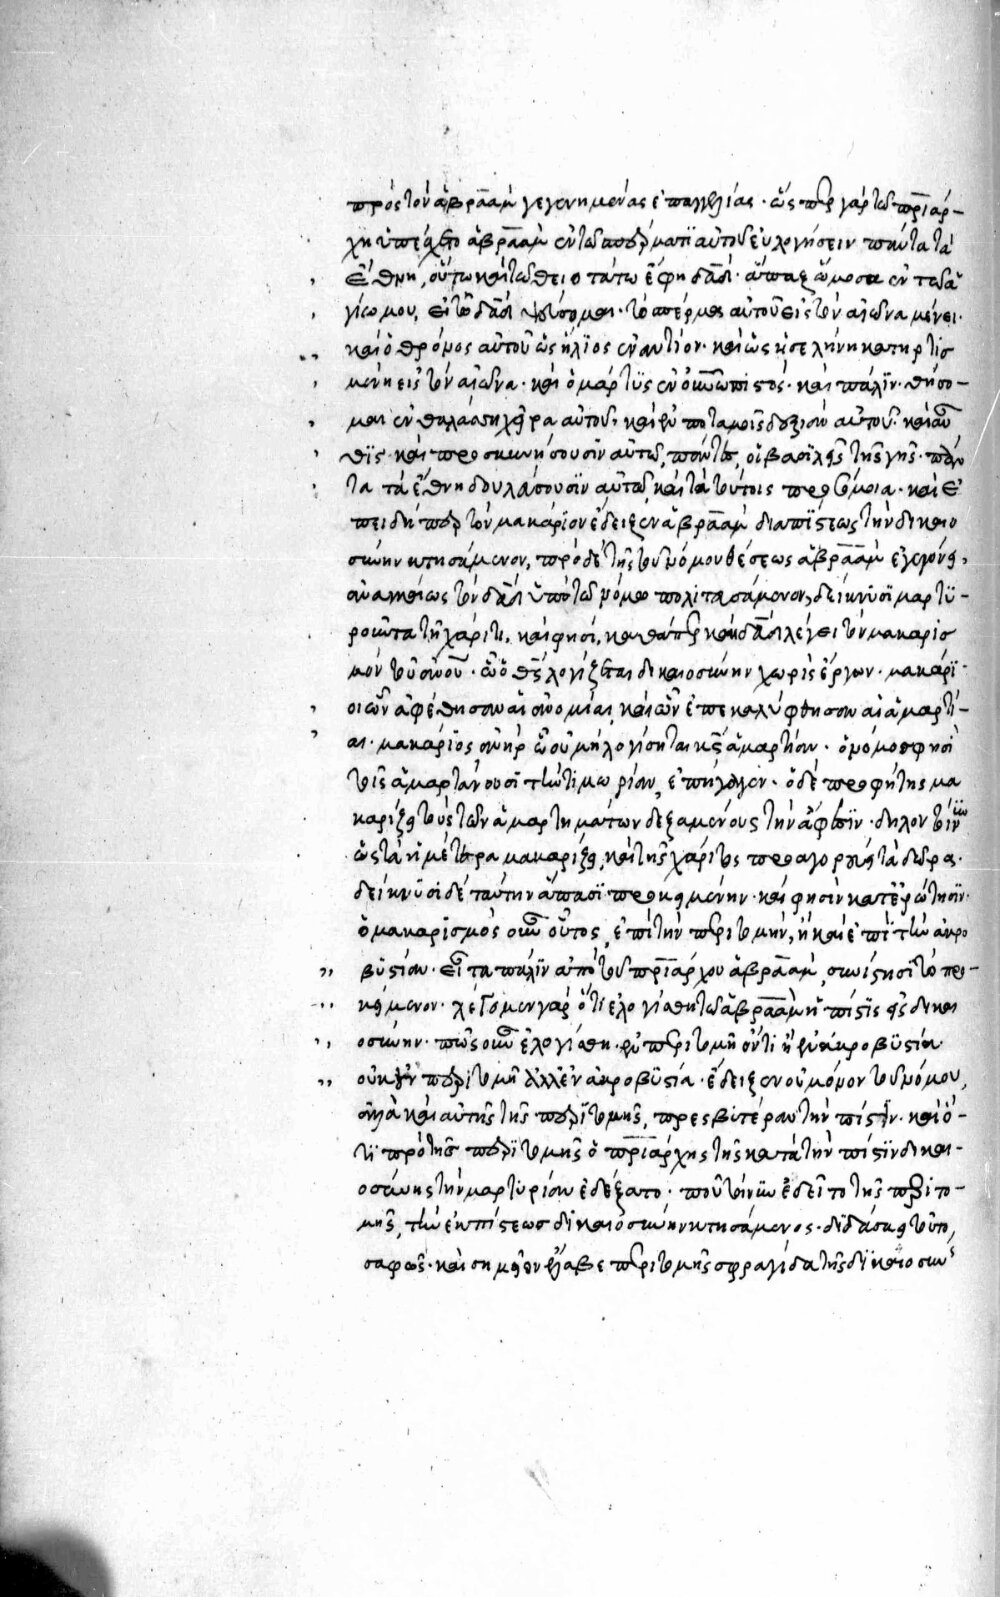 πρὸς τὸν ἀβραὰμ γεγενημένας ἐπαγγελίας· ὥσπερ γὰρ τῶ πριάρ-
χη ὑπέσχετο ἀβραὰμ ἐν τῶ σπέρματι αὐτοῦ εὐλογήσειν πάντα τὰ
ἔθνη, οὕτω καὶ τῶ θειοτάτω ἔφη δαδ· ἅπαξ ὤμοσα ἐν τῶ ἁ
γίω μου, εἰ τῶ δαδ ψεύσομαι· τὸ σπέρμα αὐτοῦ εἰς τὸν αἰῶνα μένει·
καὶ ὁ θρόνος αὐτοῦ ὡς ἥλιος ἐναντίον· καὶ ὡς ἡ σελήνη κατηρτισ
μένη εἰς τὸν αἰῶνα· καὶ ὁ μάρτυς ἐν οὐνῶ πιστός· καὶ πάλιν· θήσο-
μαι ἐν θαλάσση χεῖρα αὐτοῦ, καὶ ἐν ποταμοῖς δεξιὰν αὐτοῦ· καὶ αὖ
θις· καὶ προσκυνήσουσιν αὐτῶ, πάντες οἱ βασιλεῖς τῆς γῆς· πάν
τα τὰ ἔθνη δουλεύσουσιν αὐτῶ, καὶ τὰ τούτοις προσόμοια· καὶ ἐ
πειδήπερ τὸν μακάριον ἔδειξεν ἀβραὰμ διὰ πίστεως τὴν δικαιο
σύνην κτησάμενον, πρὸ δὲ τῆς τοῦ νόμου θέσεως ἀβραὰμ ἐγεγόνει,
ἀναγκαίως τὸν δαδ ὑπὸ τῶ νόμω πολιτευσάμενον, δείκνυσι μαρτυ-
ροῦντα τῆ χάριτι, καὶ φησί, καθάπερ καὶ δαδ λέγει τὸν μακαρισ
μὸν τοῦ ἀνου· ὧ ὁ θς λογίζεται δικαιοσύνην χωρὶς ἔργων· μακάρι-
οι ὧν ἀφέθησαν αἱ ἀνομίαι, καὶ ὧν ἐπεκαλύφθησαν αἱ ἁμαρτί-
αι· μακάριος ἀνὴρ ὧ οὐ μὴ λογίσηται κς ἁμαρτίαν· ὁ νόμος φησὶ
τοῖς ἁμαρτάνουσι τὴν τιμωρίαν, ἐπήγαγεν· ὁ δὲ προφήτης μα
καρίζει τοὺς τῶν ἁμαρτημάτων δεξαμένους τὴν ἄφεσιν· δῆλον τοίνυν
ὡς τὰ ἡμέτερα μακαρίζει, καὶ τῆς χάριτος προαγορεύει τὰ δῶρα·
δείκνυσι δὲ ταύτην ἅπασι προκειμένην· καὶ φησὶν κατ' ἐρώτησιν·
ὁ μακαρισμὸς οὖν οὗτος, ἐπὶ τὴν περιτομήν, ἢ καὶ ἐπὶ τὴν ἀκρο
βυστίαν· εἶτα πάλιν ἀπὸ τοῦ πριάρχου ἀβραὰμ, συνίστησι τὸ προ
κείμενον· λέγομεν γὰρ ὅτι ἐλογίσθη τῶ ἀβραὰμ ἡ πίστις εἰς δικαι
οσύνην· πῶς οὖν ἐλογίσθη· ἐν περιτομῆ ὄντι ἢ ἐν ἀκροβυστία·
οὐκ ἐν περιτομῆ ἀλλ' ἐν ἀκροβυστία· ἔδειξεν οὐ μόνον τοῦ νόμου,
ἀλλὰ καὶ αὐτῆς τῆς περιτομῆς, πρεσβυτέραν τὴν πίστιν· καὶ ὅ-
τι πρὸ τῆς περιτομῆς ὁ πριάρχης τῆς κατὰ τὴν πίστιν δικαι-
οσύνης τὴν μαρτυρίαν ἐδέξατο· ποῦ τοίνυν ἔδει τὸ τῆς περιτο-
μῆς, τὴν ἐκ πίστεως δικαιοσύνην κτησάμενος· διδάσκει τοῦτο,
σαφῶς· καὶ σημεῖον ἔλαβε περιτομῆς σφραγίδα τῆς δικαιοσύν